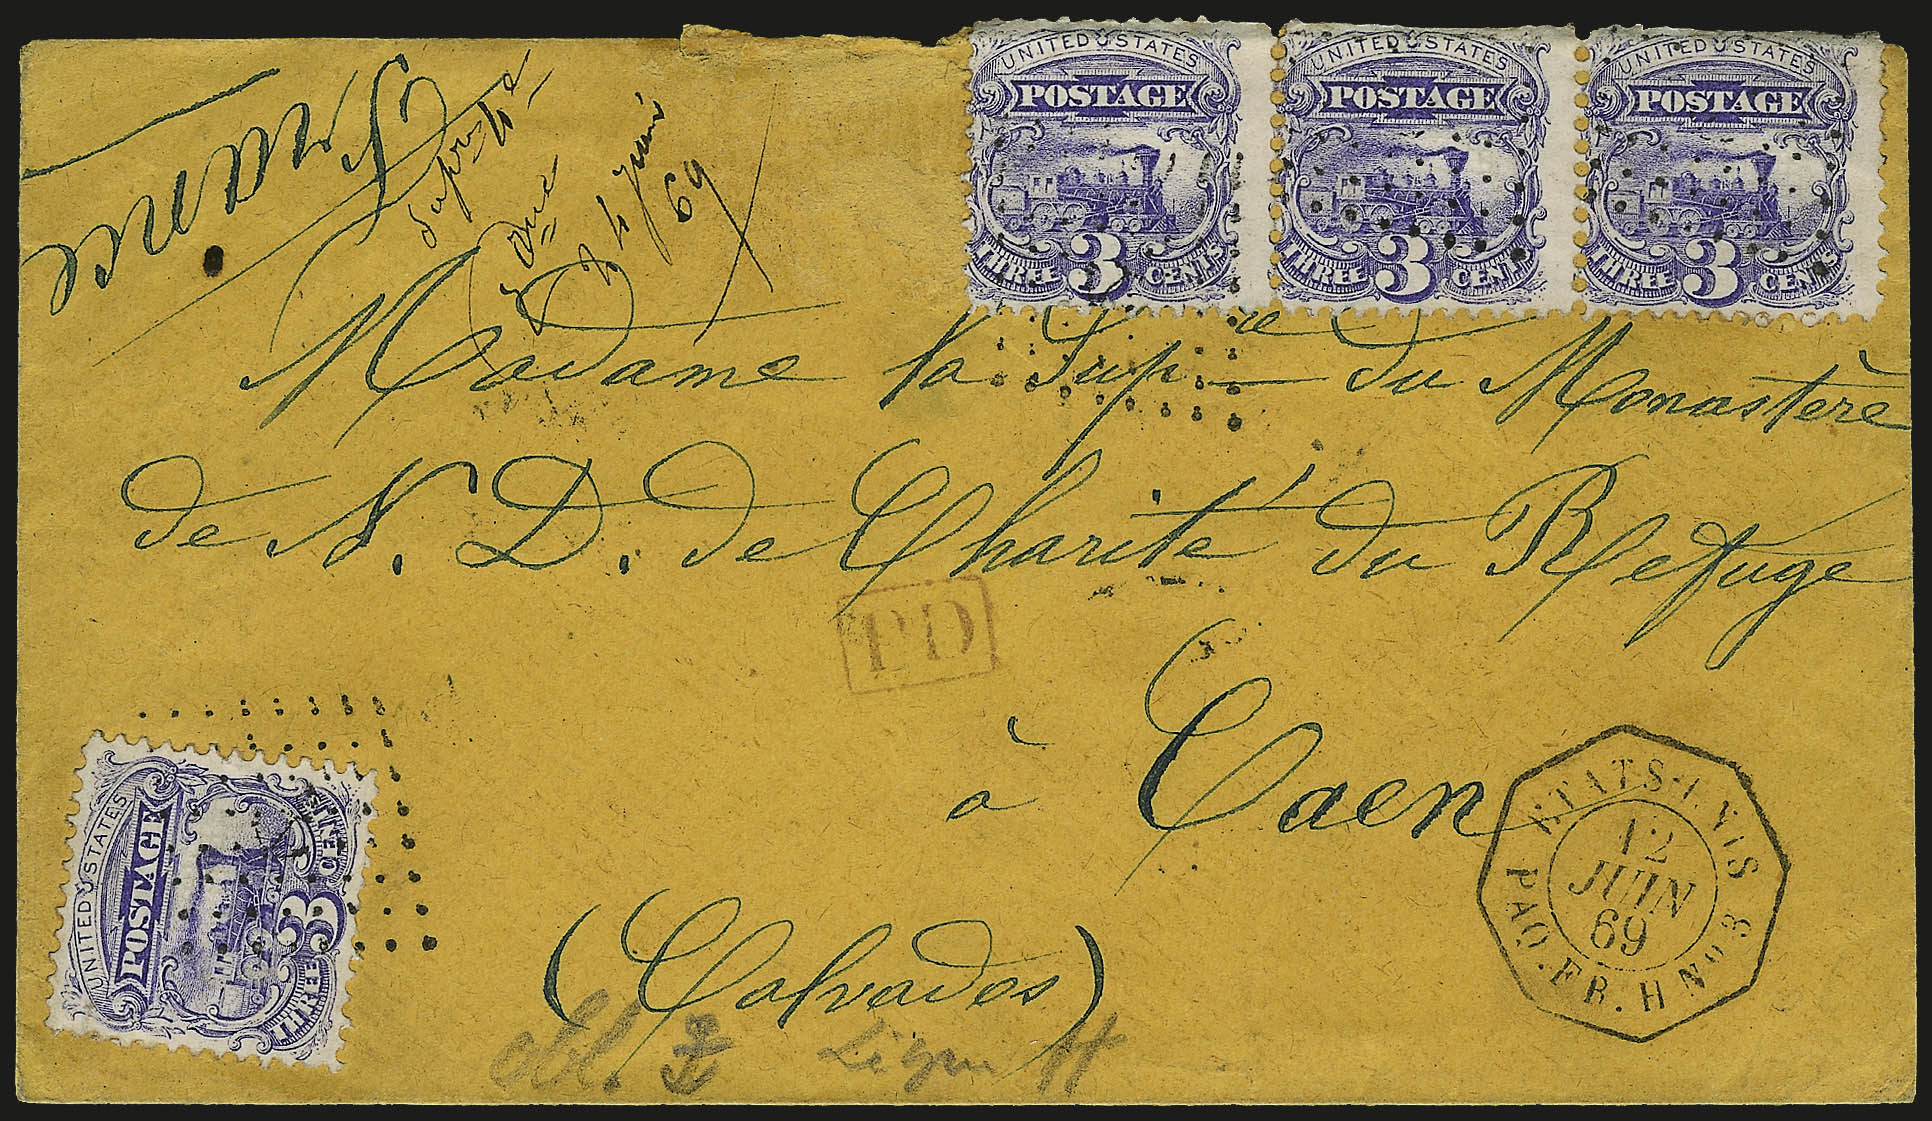 France
Due
14 juin
69
UNITED STATES
POSTAGE
THREE 3 CENTS
UNITED STATES
POSTAGE
THREE 3 CENTS
UNITED STATES
POSTAGE
THREE 3 CENTS
Madame la Sup.re du Monastère
de N. D. de Charité du Refuge
PD
à Caen
(Calvados)
UNITED STATES
POSTAGE
THREE 3 CENTS
ETATS-UNIS
12
JUIN
69
PAQ. FR. H No 3
H